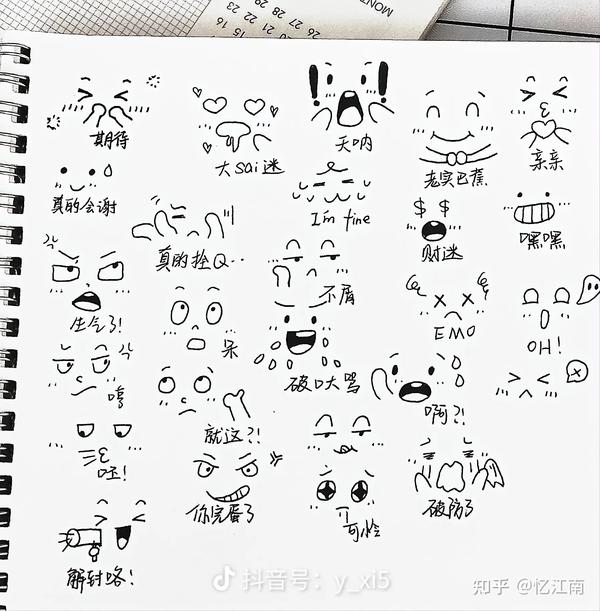 MONT
16 15
23 22
20 21
28
期待
大sai迷
天呐
老实巴蕉
亲亲
真的会谢
I'm fine
$ $
财迷
嘿嘿
真的拴Q··
不屑
生气了!
呆
破口大骂
EMO
OH!
哼
就这?!
啊?!
呸!
你完蛋了
可怜
破防了
解封咯!
抖音号: y_xi5
知乎 @忆江南